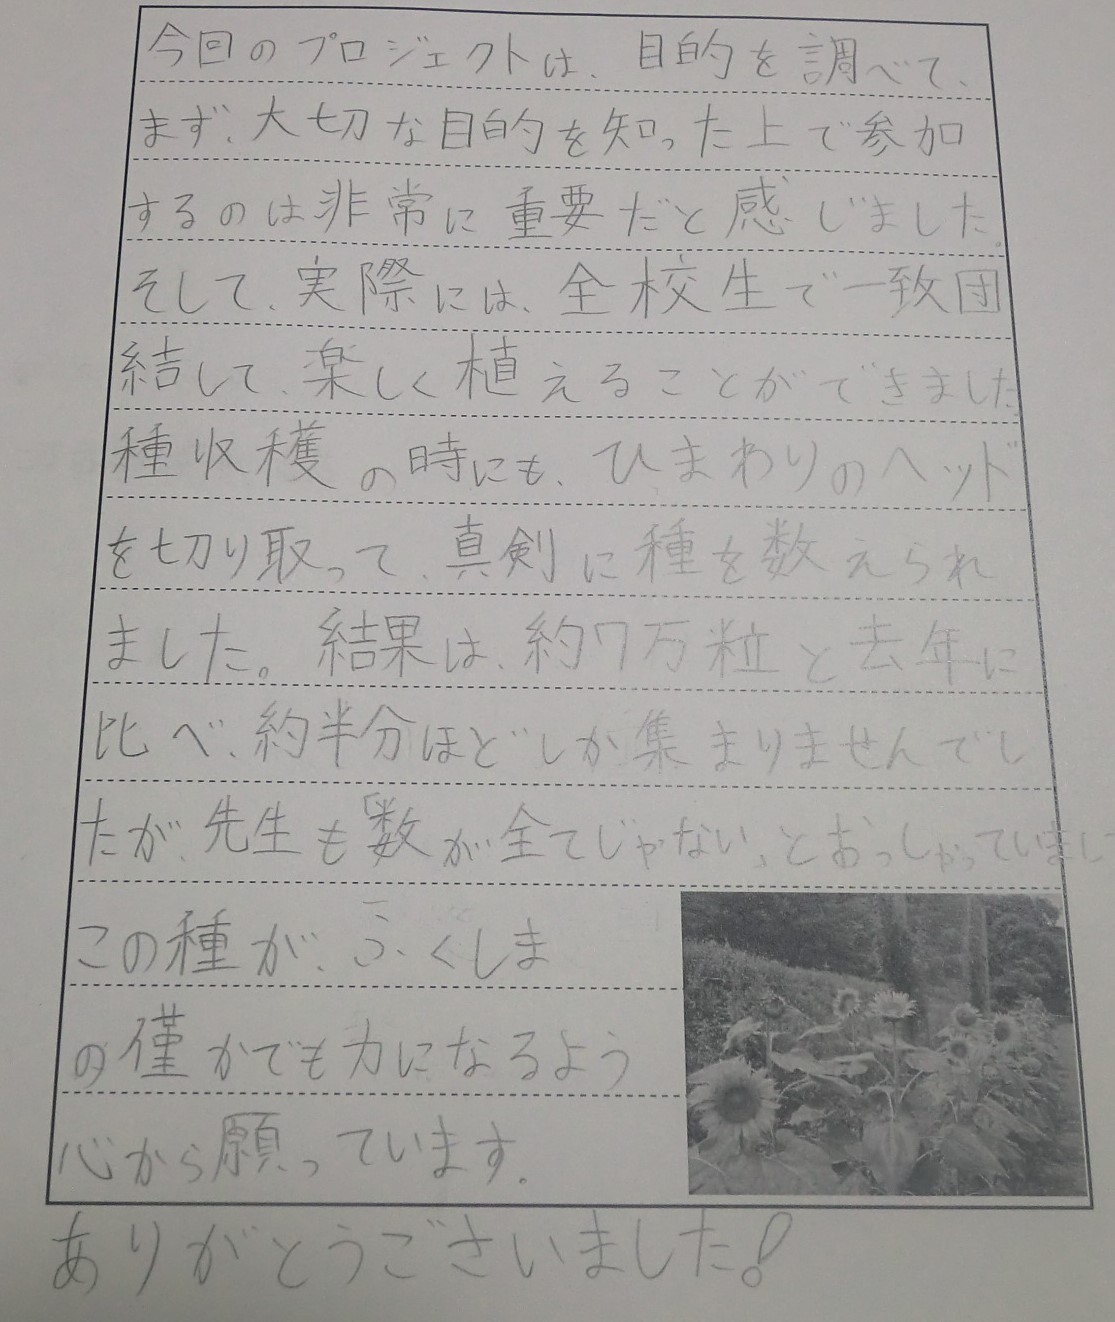 今回のプロジェクトは、目的を調べて、
まず、大切な目的を知った上で参加
するのは非常に重要だと感じました。
そして、実際には、全校生で一致団
結して、楽しく植えることができました
種収穫の時にも、ひまわりのヘッド
を切り取って、真剣に種を数えられ
ました。結果は、約7万粒と去年に
比べ、約半分ほどしか集まりませんでし
たが、先生も「数が全てじゃない」とおっしゃっていまし
この種が、ふくしま
の僅かでも力になるよう
心から願っています。
ありがとうございました!